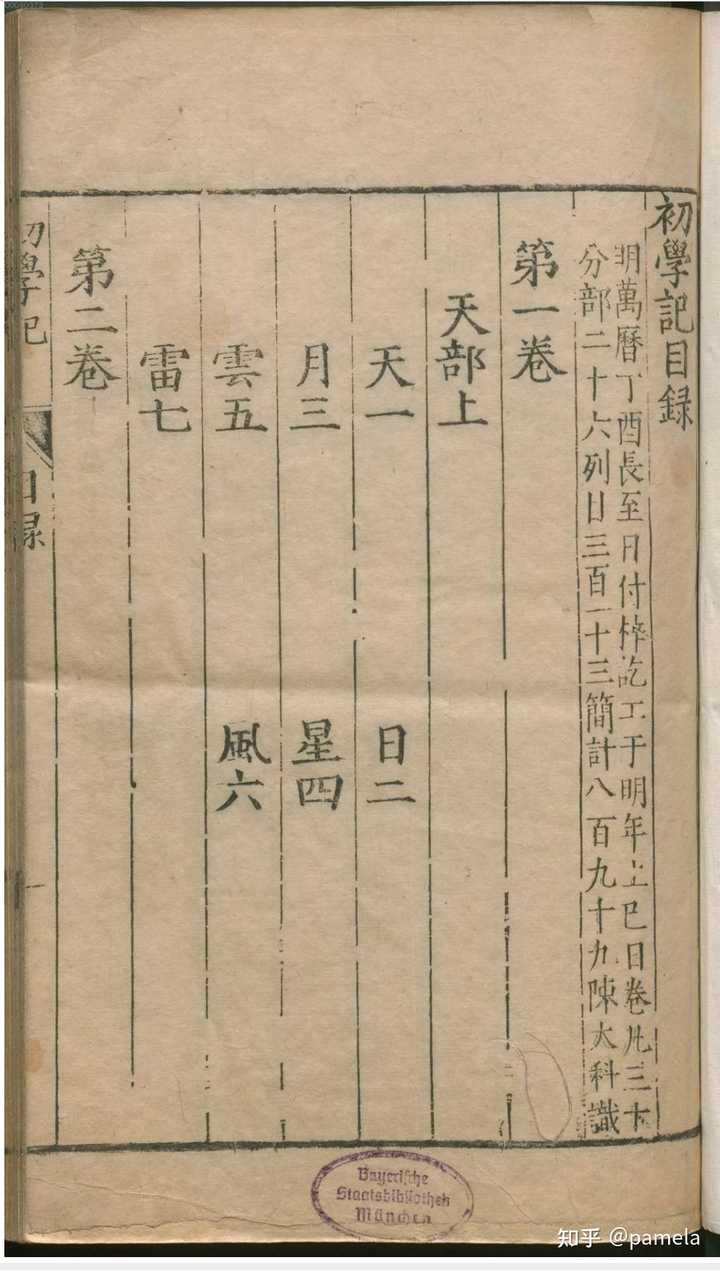 初學記目録
明萬曆丁酉長至日付梓訖工于明年上巳日卷凡三十
分部二十六列目三百一十三簡計八百九十九陳大科識
第一卷
天部上
天一 日二
月三 星四
雲五 風六
雷七
第二卷
初學記 目録 一
Bayerische
Staatsbibliothek
München
知乎 @pamela